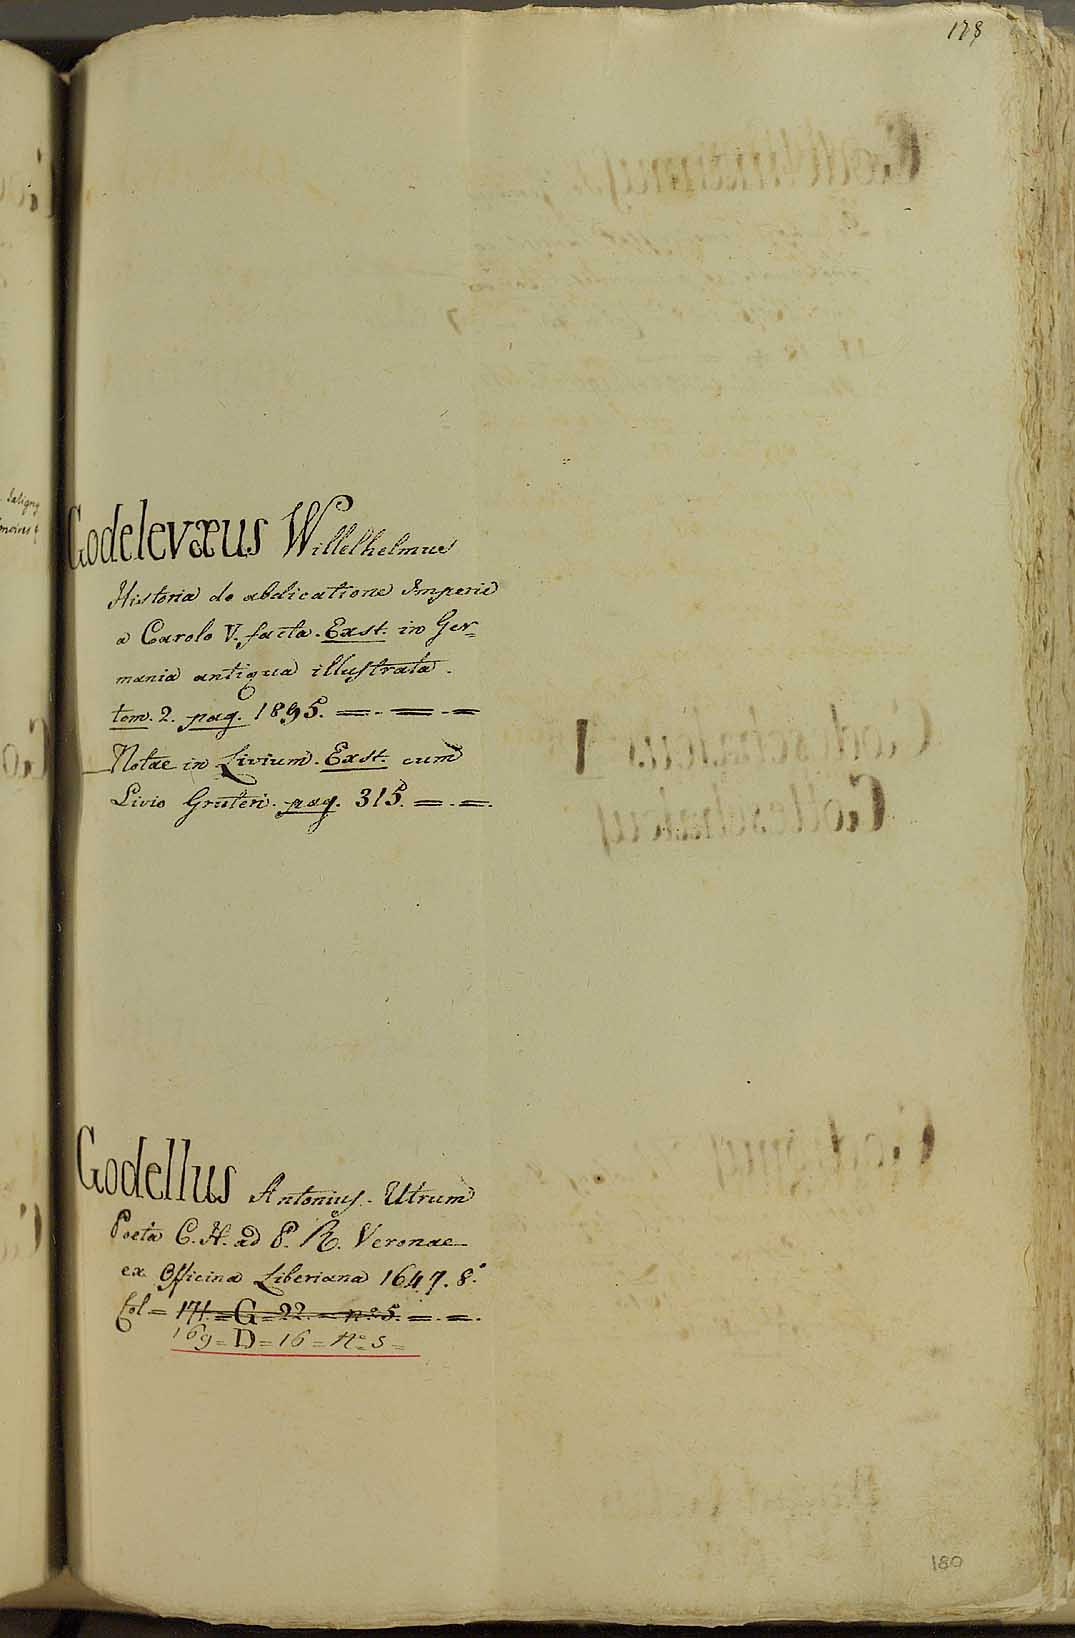 178
Godelevæus Willelhelmus
Historia de abdicatione Imperii
a Carolo V. facta. Exst. in Ger=
mania antiqua illustrata.
tom. 2. pag. 1895. =.=.=
Notae in Livium. Exst. cum
Livio Gruteri. pag. 315. =.=.
Godellus Antonius. Utrum
Poeta C. H. ad P. R. Veronae
ex Officina Liberiana 1647. 8.°
fol = 171. = G = 22 = n.° 5. =.=.
169 = D = 16 = N.° 5 =
180